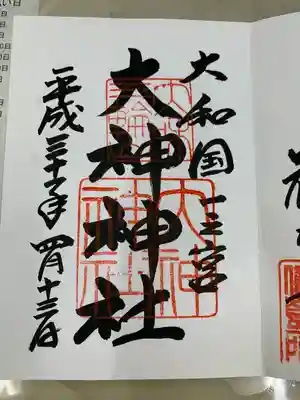 大和国一之宮
大神神社
大神
神社
平成三十年四月十三日